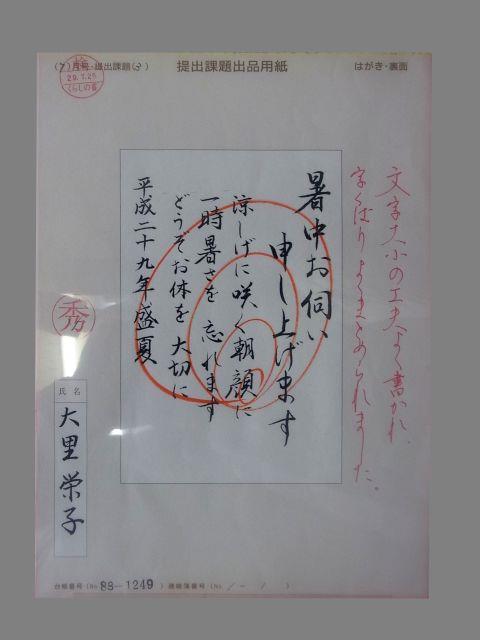 (7)月号・提出課題(3)
提出課題出品用紙
はがき・裏面
29.7.25
くらしの書
文字大小の工夫よく書かれ、
字くばりよくまとめられました。
暑中お伺い
申し上げます
涼しげに咲く朝顔に
一時暑さを忘れます
どうぞお休を大切に
平成二十九年盛夏
秀
氏名
大里栄子
台帳番号(No. 88-1249)連絡簿番号(No. / - / )